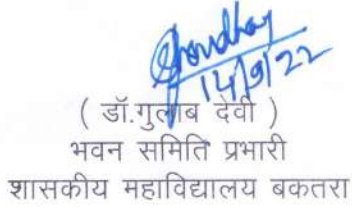 Choudhary
14/9/22
( डॉ.गुलाब देवी )
भवन समिति प्रभारी
शासकीय महाविद्यालय बकतरा